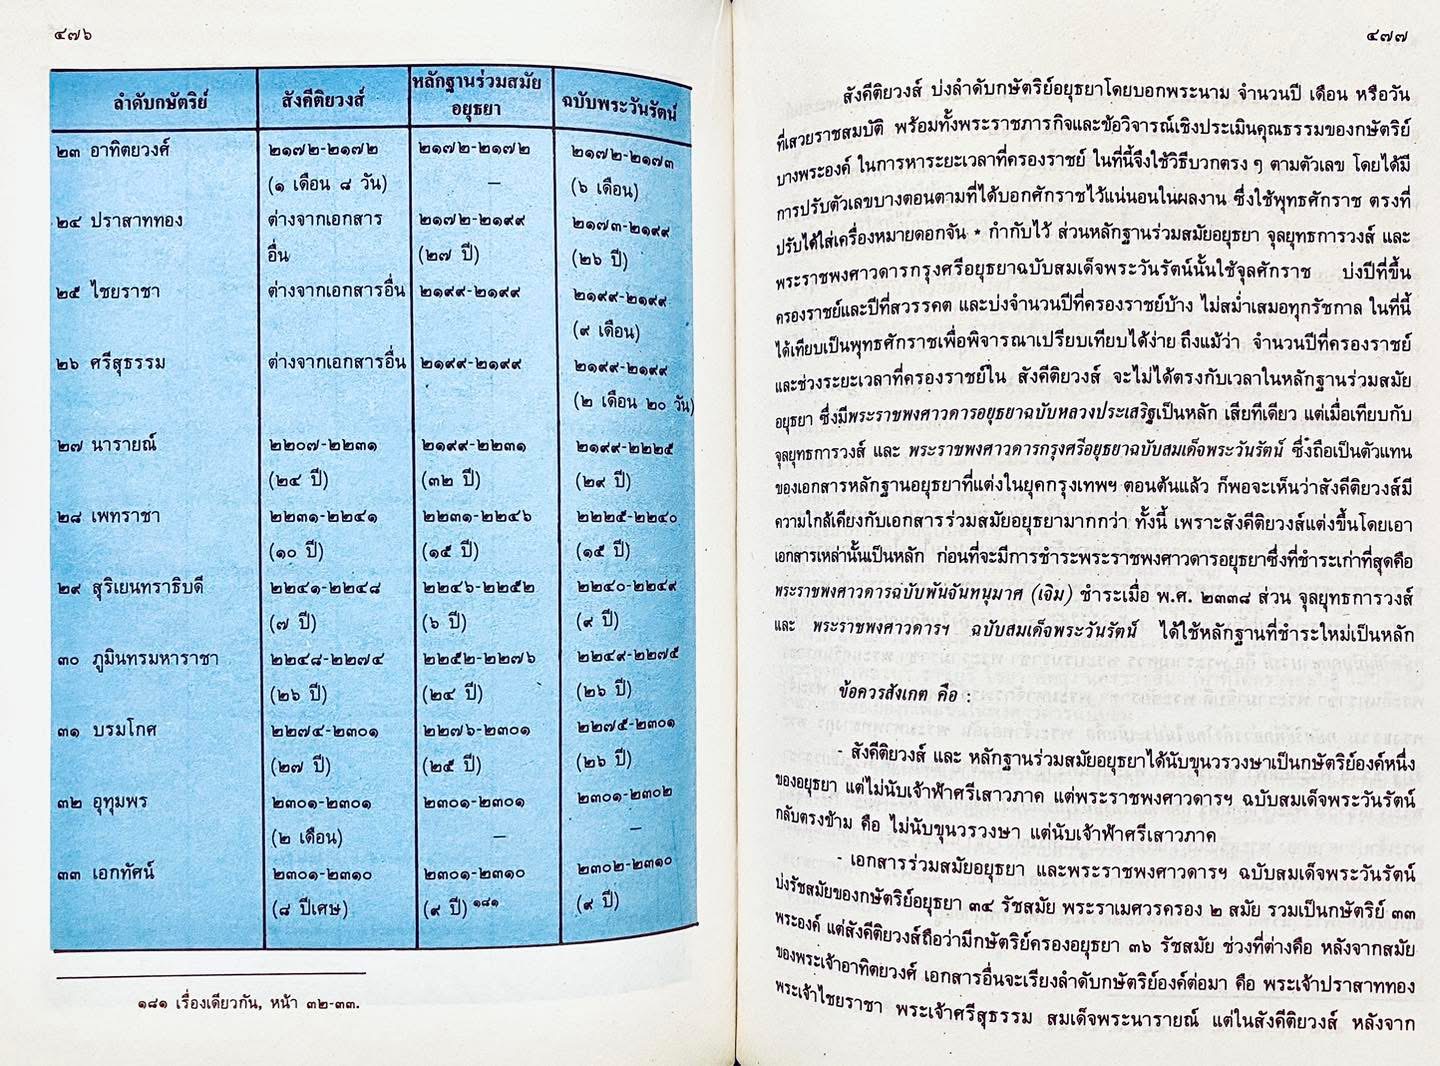 ๔๗๖
ลำดับกษัตริย์ สังคีติยวงส์ หลักฐานร่วมสมัยอยุธยา ฉบับพระวันรัตน์
๒๓ อาทิตยวงศ์ ๒๑๗๒-๒๑๗๒ ๒๑๗๒-๒๑๗๒ ๒๑๗๒-๒๑๗๓
(๑ เดือน ๘ วัน) — (๖ เดือน)
๒๔ ปราสาททอง ต่างจากเอกสาร ๒๑๗๒-๒๑๙๙ ๒๑๗๓-๒๑๙๙
อื่น (๒๗ ปี) (๒๖ ปี)
๒๕ ไชยราชา ต่างจากเอกสารอื่น ๒๑๙๙-๒๑๙๙ ๒๑๙๙-๒๑๙๙
(๙ เดือน)
๒๖ ศรีสุธรรม ต่างจากเอกสารอื่น ๒๑๙๙-๒๑๙๙ ๒๑๙๙-๒๑๙๙
(๒ เดือน ๒๐ วัน)
๒๗ นารายณ์ ๒๒๐๗-๒๒๓๑ ๒๑๙๙-๒๒๓๑ ๒๑๙๙-๒๒๒๕
(๒๔ ปี) (๓๒ ปี) (๒๙ ปี)
๒๘ เพทราชา ๒๒๓๑-๒๒๔๑ ๒๒๓๑-๒๒๔๖ ๒๒๒๕-๒๒๔๐
(๑๐ ปี) (๑๕ ปี) (๑๕ ปี)
๒๙ สุริเยนทราธิบดี ๒๒๔๑-๒๒๔๘ ๒๒๔๖-๒๒๕๒ ๒๒๔๐-๒๒๔๙
(๗ ปี) (๖ ปี) (๙ ปี)
๓๐ ภูมินทรมหาราชา ๒๒๔๘-๒๒๗๔ ๒๒๕๒-๒๒๗๖ ๒๒๔๙-๒๒๗๕
(๒๖ ปี) (๒๔ ปี) (๒๖ ปี)
๓๑ บรมโกศ ๒๒๗๔-๒๓๐๑ ๒๒๗๖-๒๓๐๑ ๒๒๗๕-๒๓๐๑
(๒๗ ปี) (๒๕ ปี) (๒๖ ปี)
๓๒ อุทุมพร ๒๓๐๑-๒๓๐๑ ๒๓๐๑-๒๓๐๑ ๒๓๐๑-๒๓๐๒
(๒ เดือน) — —
๓๓ เอกทัศน์ ๒๓๐๑-๒๓๑๐ ๒๓๐๑-๒๓๑๐ ๒๓๐๒-๒๓๑๐
(๘ ปีเศษ) (๙ ปี) ๑๘๑ (๙ ปี)
๑๘๑ เรื่องเดียวกัน, หน้า ๓๒-๓๓.
๔๗๗
สังคีติยวงส์ บ่งลำดับกษัตริย์อยุธยาโดยบอกพระนาม จำนวนปี เดือน หรือวัน
ที่เสวยราชสมบัติ พร้อมทั้งพระราชภารกิจและข้อวิจารณ์เชิงประเมินคุณธรรมของกษัตริย์
บางพระองค์ ในการหาระยะเวลาที่ครองราชย์ ในที่นี้จึงใช้วิธีบวกตรง ๆ ตามตัวเลข โดยได้มี
การปรับตัวเลขบางตอนตามที่ได้บอกศักราชไว้แน่นอนในผลงาน ซึ่งใช้พุทธศักราช ตรงที่
ปรับได้ใส่เครื่องหมายดอกจัน * กำกับไว้ ส่วนหลักฐานร่วมสมัยอยุธยา จุลยุทธการวงส์ และ
พระราชพงศาวดารกรุงศรีอยุธยาฉบับสมเด็จพระวันรัตน์นั้นใช้จุลศักราช บ่งปีที่ขึ้น
ครองราชย์และปีที่สวรรคต และบ่งจำนวนปีที่ครองราชย์บ้าง ไม่สม่ำเสมอทุกรัชกาล ในที่นี้
ได้เทียบเป็นพุทธศักราชเพื่อพิจารณาเปรียบเทียบได้ง่าย ถึงแม้ว่า จำนวนปีที่ครองราชย์
และช่วงระยะเวลาที่ครองราชย์ใน สังคีติยวงส์ จะไม่ได้ตรงกับเวลาในหลักฐานร่วมสมัย
อยุธยา ซึ่งมีพระราชพงศาวดารอยุธยาฉบับหลวงประเสริฐเป็นหลัก เสียทีเดียว แต่เมื่อเทียบกับ
จุลยุทธการวงส์ และ พระราชพงศาวดารกรุงศรีอยุธยาฉบับสมเด็จพระวันรัตน์ ซึ่งถือเป็นตัวแทน
ของเอกสารหลักฐานอยุธยาที่แต่งในยุคกรุงเทพฯ ตอนต้นแล้ว ก็พอจะเห็นว่าสังคีติยวงส์มี
ความใกล้เคียงกับเอกสารร่วมสมัยอยุธยามากกว่า ทั้งนี้ เพราะสังคีติยวงส์แต่งขึ้นโดยเอา
เอกสารเหล่านั้นเป็นหลัก ก่อนที่จะมีการชำระพระราชพงศาวดารอยุธยาซึ่งที่ชำระเก่าที่สุดคือ
พระราชพงศาวดารฉบับพันจันทนุมาศ (เจิม) ชำระเมื่อ พ.ศ. ๒๓๓๘ ส่วน จุลยุทธการวงส์
และ พระราชพงศาวดารฯ ฉบับสมเด็จพระวันรัตน์ ได้ใช้หลักฐานที่ชำระใหม่เป็นหลัก
ข้อควรสังเกต คือ :
- สังคีติยวงส์ และ หลักฐานร่วมสมัยอยุธยาได้นับขุนวรวงษาเป็นกษัตริย์องค์หนึ่ง
ของอยุธยา แต่ไม่นับเจ้าฟ้าศรีเสาวภาค แต่พระราชพงศาวดารฯ ฉบับสมเด็จพระวันรัตน์
กลับตรงข้าม คือ ไม่นับขุนวรวงษา แต่นับเจ้าฟ้าศรีเสาวภาค
- เอกสารร่วมสมัยอยุธยา และพระราชพงศาวดารฯ ฉบับสมเด็จพระวันรัตน์
บ่งรัชสมัยของกษัตริย์อยุธยา ๓๔ รัชสมัย พระราเมศวรครอง ๒ สมัย รวมเป็นกษัตริย์ ๓๓
พระองค์ แต่สังคีติยวงส์ถือว่ามีกษัตริย์ครองอยุธยา ๓๖ รัชสมัย ช่วงที่ต่างคือ หลังจากสมัย
ของพระเจ้าอาทิตยวงศ์ เอกสารอื่นจะเรียงลำดับกษัตริย์องค์ต่อมา คือ พระเจ้าปราสาททอง
พระเจ้าไชยราชา พระเจ้าศรีสุธรรม สมเด็จพระนารายณ์ แต่ในสังคีติยวงส์ หลังจาก